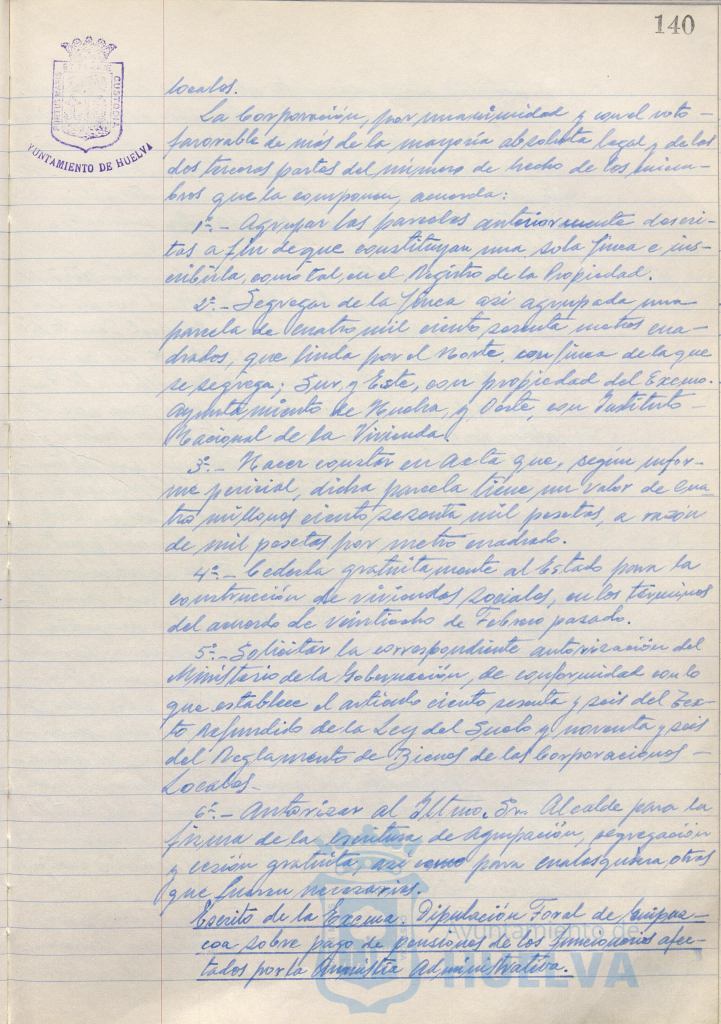 140
PORTUS MARIS
CUSTODIA
YUNTAMIENTO DE HUELVA
locales.
La Corporación, por unanimidad y con el voto
favorable de más de la mayoría absoluta legal y de las
dos terceras partes del número de hecho de los miem-
bros que la componen, acuerda:
1º.- Agrupar las parcelas anteriormente descri-
tas a fin de que constituyan una sola finca e ins-
cribirla, como tal, en el Registro de la Propiedad.
2º.- Segregar de la finca así agrupada una
parcela de cuatro mil ciento sesenta metros cua-
drados, que linda por el Norte, con finca de la que
se segrega; Sur y Este, con propiedad del Excmo.
Ayuntamiento de Huelva, y Oeste, con Instituto
Nacional de la Vivienda.
3º.- Hacer constar en Acta que, según infor-
me pericial, dicha parcela tiene un valor de cua-
tro millones ciento sesenta mil pesetas, a razón
de mil pesetas por metro cuadrado.
4º.- Cederla gratuitamente al Estado para la
construcción de viviendas sociales, en los términos
del acuerdo de veintiocho de Febrero pasado.
5º.- Solicitar la correspondiente autorización del
Ministerio de la Gobernación, de conformidad con lo
que establece el artículo ciento sesenta y seis del Tex-
to Refundido de la Ley del Suelo y noventa y seis
del Reglamento de Bienes de las Corporaciones
Locales.
6º.- Autorizar al Iltmo. Sr. Alcalde para la
firma de la escritura de agrupación, segregación
y cesión gratuita, así como para cualesquiera otras
que fueran necesarias.
Escrito de la Excma. Diputación Foral de Guipúz-
coa sobre pago de pensiones de los funcionarios afec-
tados por la Amnistía Administrativa.
Ayuntamiento de
HUELVA